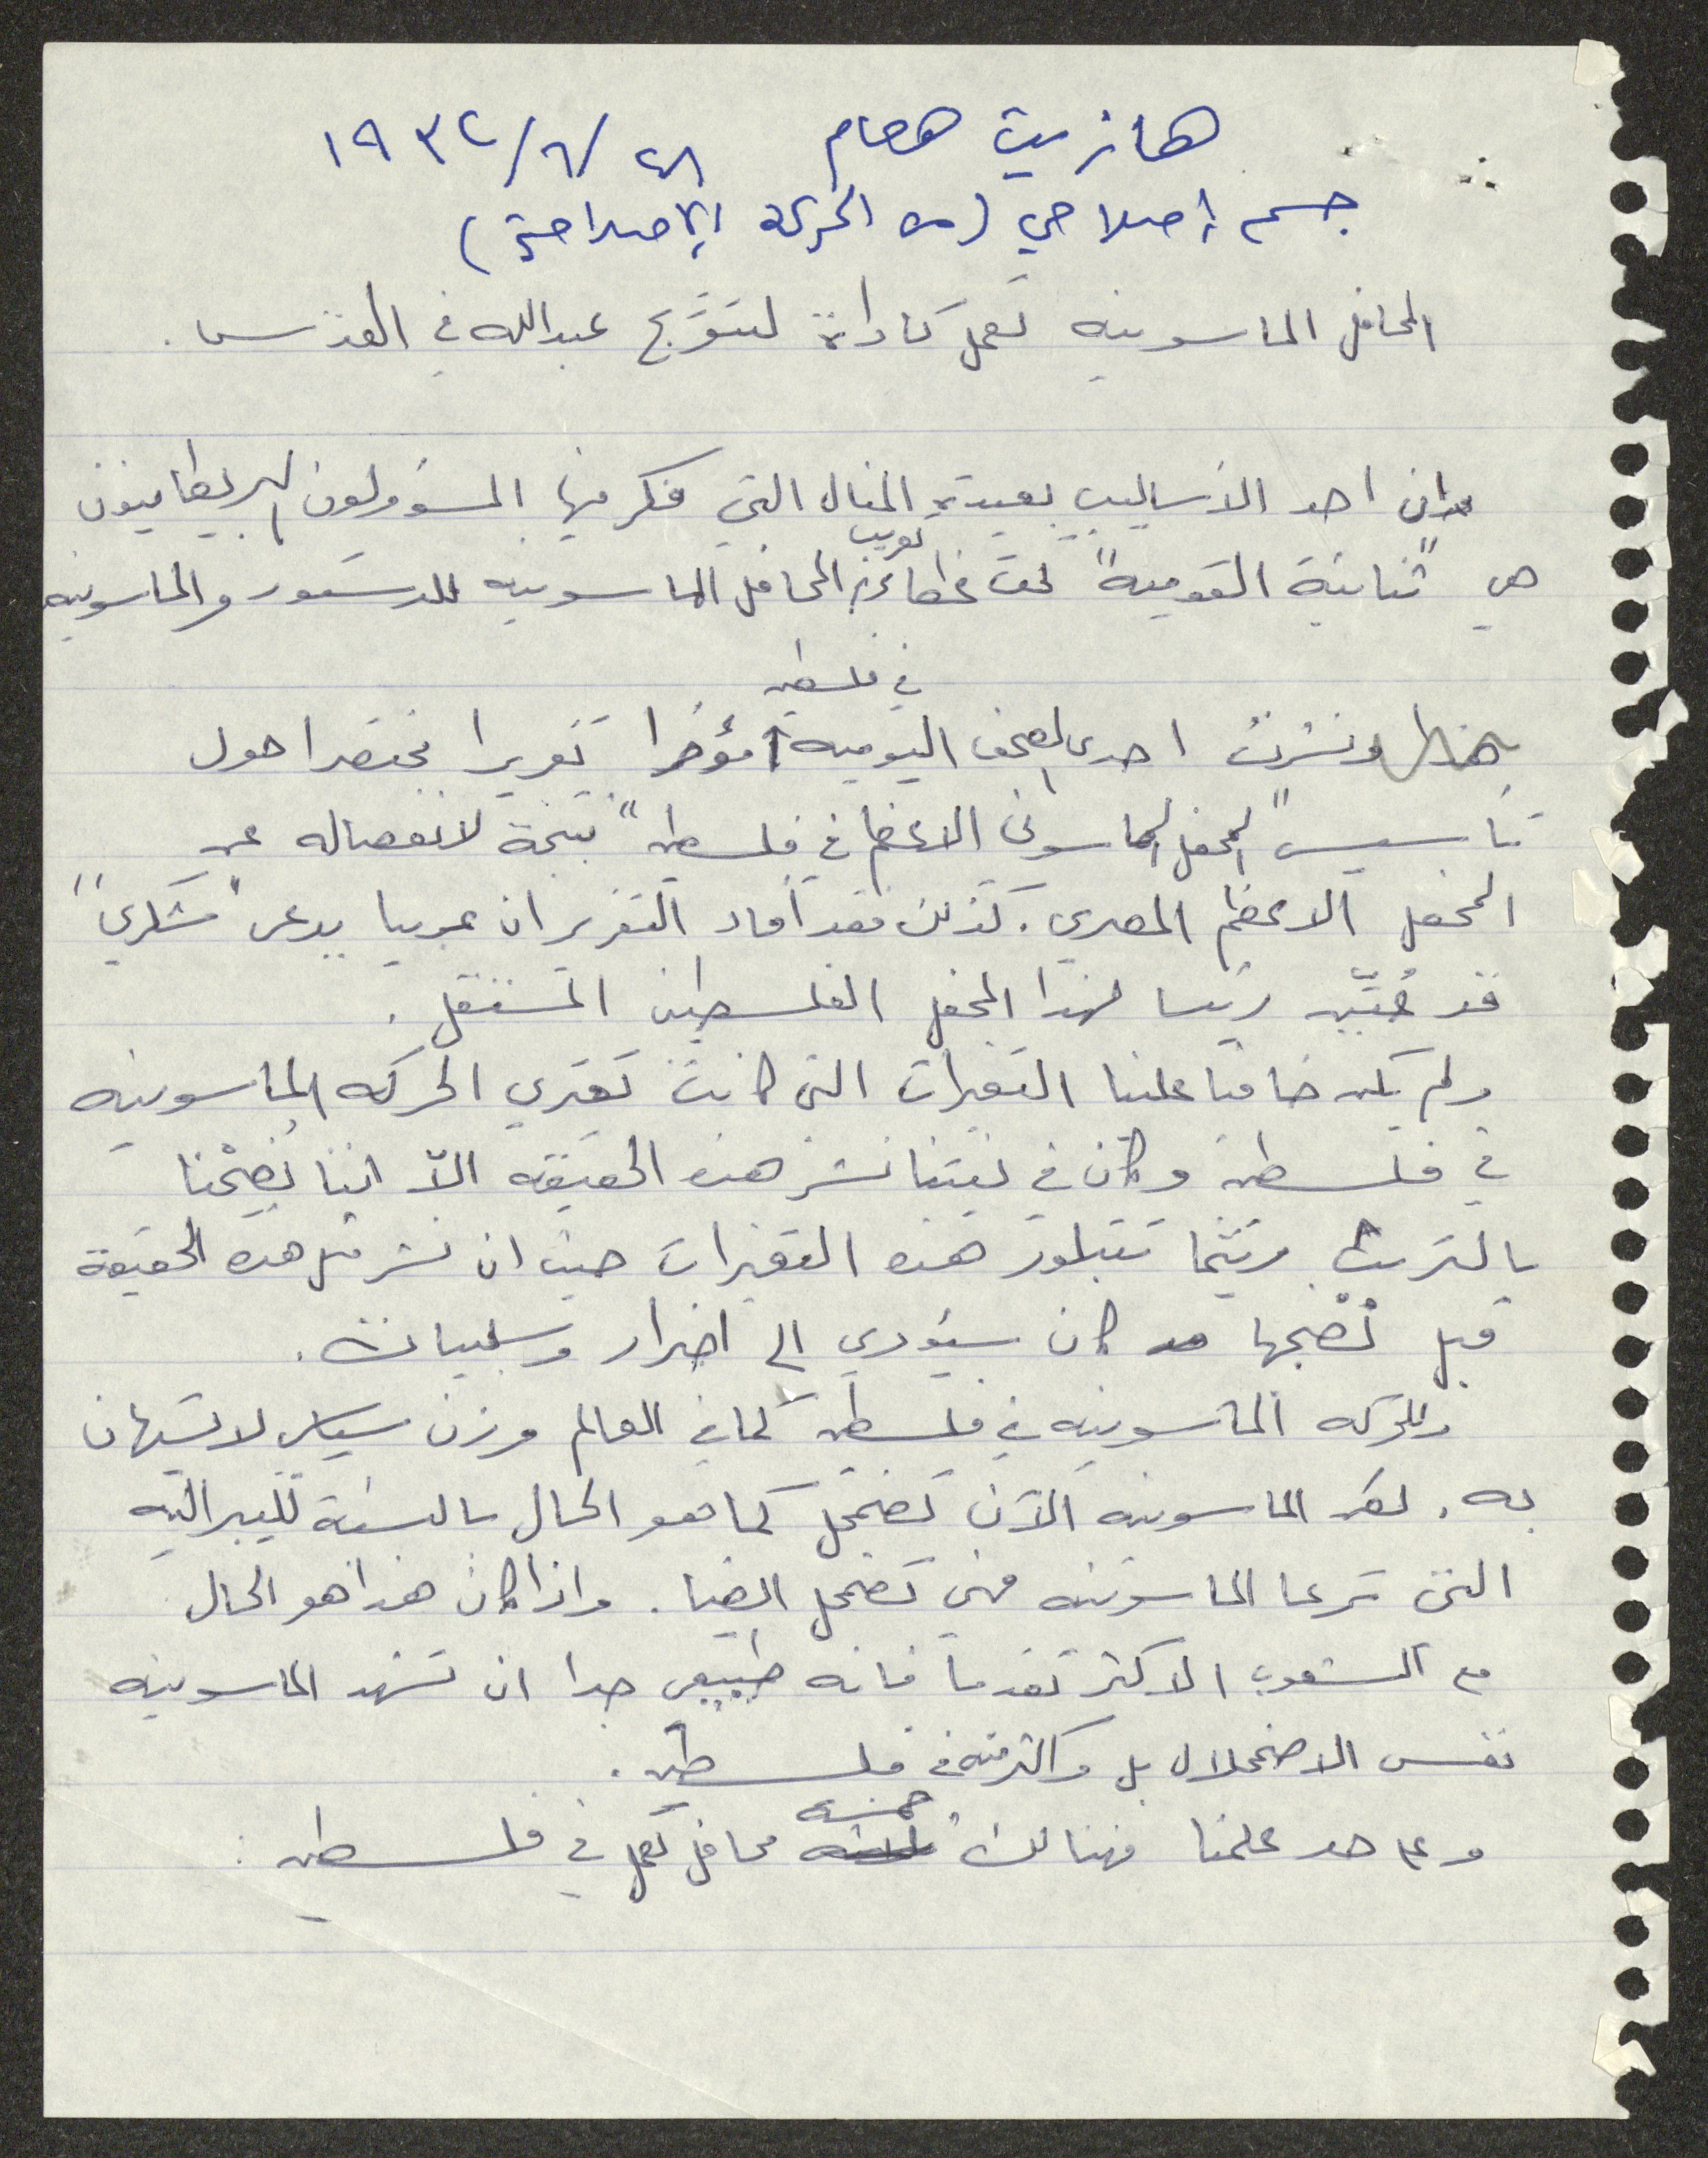 هازيت هعام ٢٨/٦/١٩٣٢
جسم إصلاحي (من الحركة الإصلاحية)
المحافل الماسونيه تعمل كاداة لتتويج عبدالله في القدس.
ان احد الأساليب بعيدة المنال التي فكر فيها المسؤولون البريطانيون
هي "ثنائية القومية" تحت غطاء تعريب المحافل الماسونيه للدستور والماسونيه
في فلسطين
ونشرت احدى الصحف اليومية مؤخرا تقريرا مختصرا حول
تأسيس "المحفل الماسوني الاعظم في فلسطين" نتيجة لانفصاله عن
المحفل الاعظم المصري. كذلك فقد أفاد التقرير ان عربيا يدعى "شكري"
قد عُيّن رئيسا لهذا المحفل الفلسطيني المستقل.
ولم يكن خافيا علينا التغيرات التي كانت تعتري الحركه الماسونيه
في فلسطين وكان في نيتنا نشر هذه الحقيقه الاّ اننا نُصِحْنا
بالتريث ريثما تتبلور هذه التغيرات حيث ان نشر مثل هذه الحقيقة
قبل نُضجها كان سيؤدي الى اضرار وسلبيات.
وللحركه الماسونيه في فلسطين كما في العالم وزن سياسي لا يستهان
به. لكن الماسونيه الآن تضمحل كما هو الحال بالنسبة لليبراليه
التي ترعا الماسونيه فهي تضمحل ايضا. واذا كان هذا هو الحال
مع الشعوب الاكثر تقدما فانه طبيعي جدا ان تشهد الماسونيه
نفس الاضمحلال بل واكثر منه في فلسطين.
وعلى حد علمنا فهنالك خمسه محافل تعمل في فلسطين: